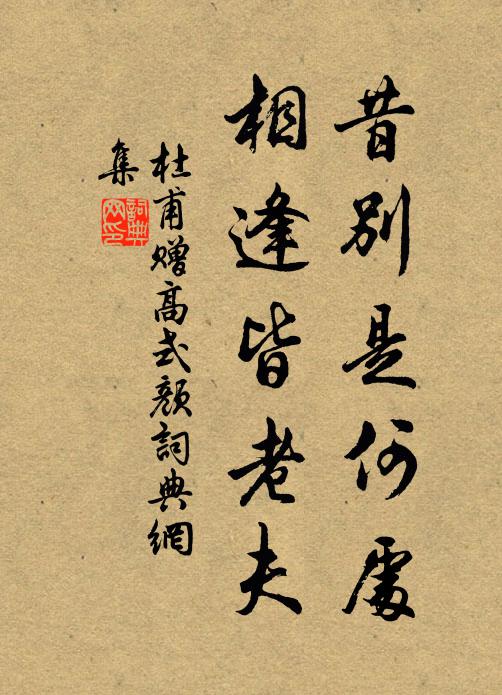 昔別是何處
相逢皆老夫
杜甫贈高式顏詞典網
集
詞典網印